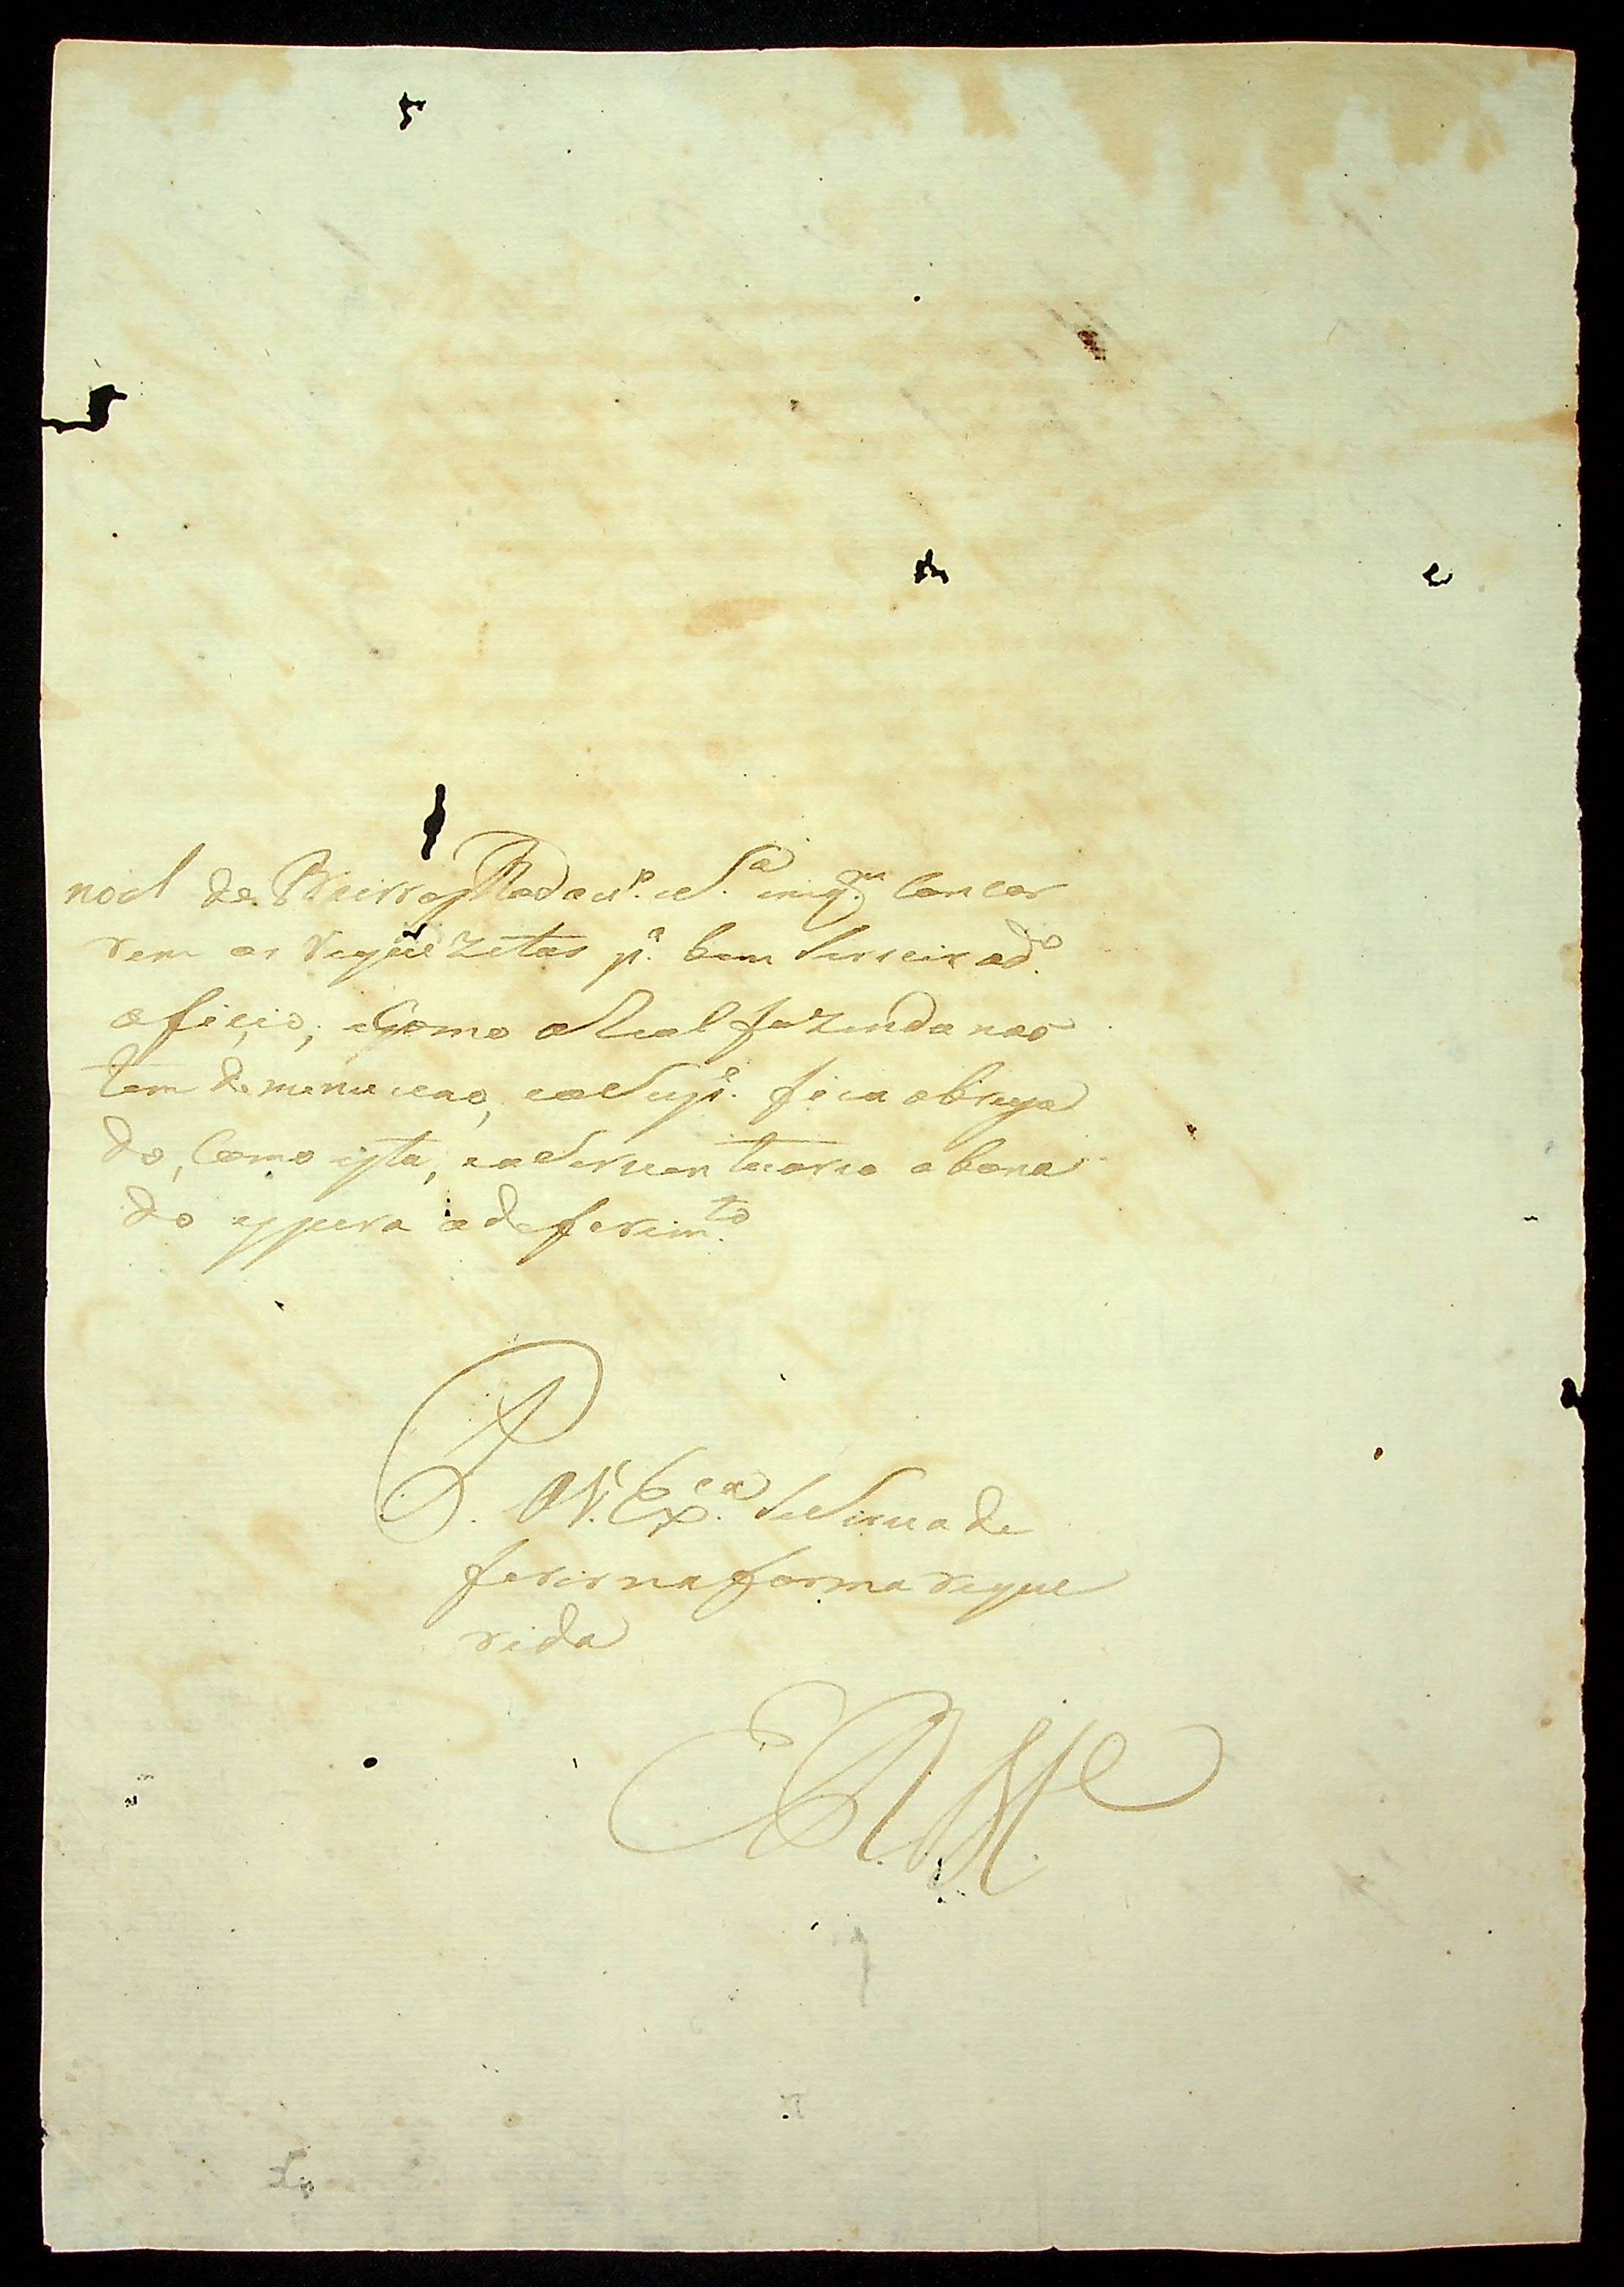 noel de Barros Madur.ª e S.ª em q.m Concor
rem os requezetos p.ª bem Servir o d.º
oficio, e Como a Real fazenda não
tem demenuicao, e o Sup.e fica obriga
do, Como esta, e o Serventuario abona
do espera o deferim.to
P. a V. Ex.cia Se Sirva de
ferir na forma reque
rida
E R M.ce